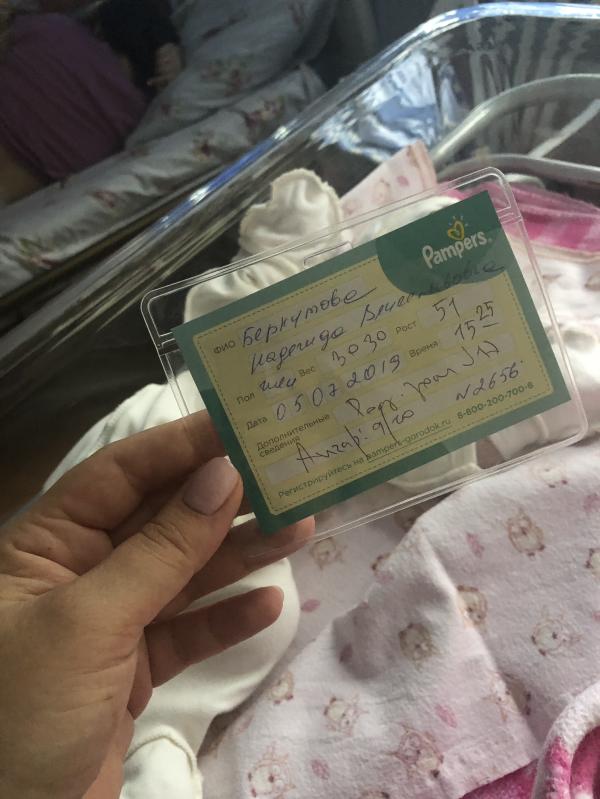 Pampers.
ФИО Беркутова
Надежда
Пол жен Вес 3030 Рост 51
Дата 05 07 2019 Время 15 25
Дополнительные
сведения
Апгар: 9/10 N 2656.
Регистрируйтесь на pampers-gorodok.ru 8-800-200-700-6